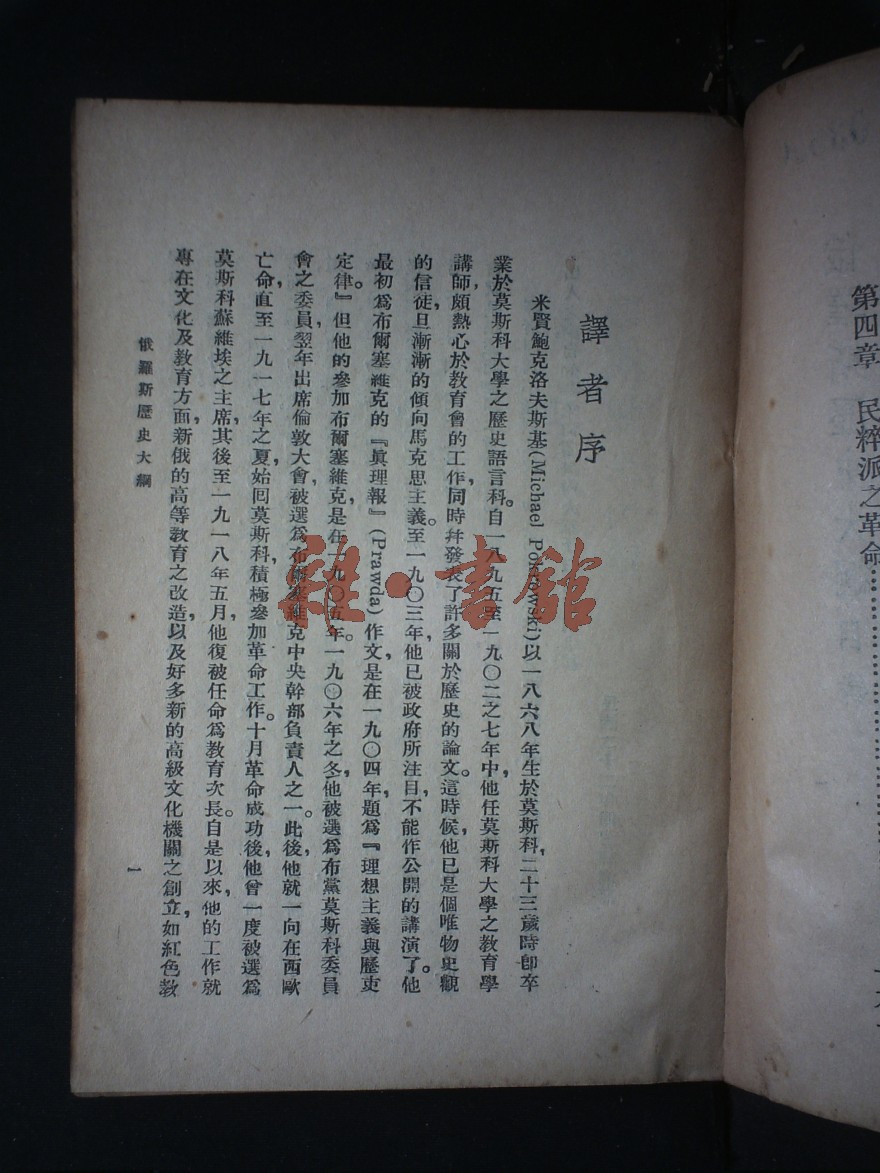 第四章　民粹派之革命⋯⋯⋯⋯⋯⋯
譯者序
米賢鮑克洛夫斯基(Michael Pokrowski)以一八六八年生於莫斯科，二十三歲時卽卒
業於莫斯科大學之歷史語言科。自一八九五至一九〇二之七年中，他任莫斯科大學之教育學
講師，頗熱心於教育會的工作，同時幷發表了許多關於歷史的論文。這時候，他已是個唯物史觀
的信徒，旦漸漸的傾向馬克思主義。至一九〇三年，他已被政府所注目，不能作公開的講演了。他
最初爲布爾塞維克的『眞理報』(Prawda)作文，是在一九〇四年，題爲『理想主義與歷史
定律』。但他的參加布爾塞維克，是在一九〇五年。一九〇六年之冬，他被選爲布黨莫斯科委員
會之委員，翌年出席倫敦大會，被選爲布爾塞維克中央幹部負責人之一。此後，他就一向在西歐
亡命，直至一九一七年之夏，始回莫斯科，積極參加革命工作。十月革命成功後，他曾一度被選爲
莫斯科蘇維埃之主席，其後至一九一八年五月，他復被任命爲教育次長。自是以來，他的工作就
專在文化及教育方面，新俄的高等教育之改造，以及好多新的高級文化機關之創立，如紅色教
俄羅斯歷史大綱
一
雜·書館